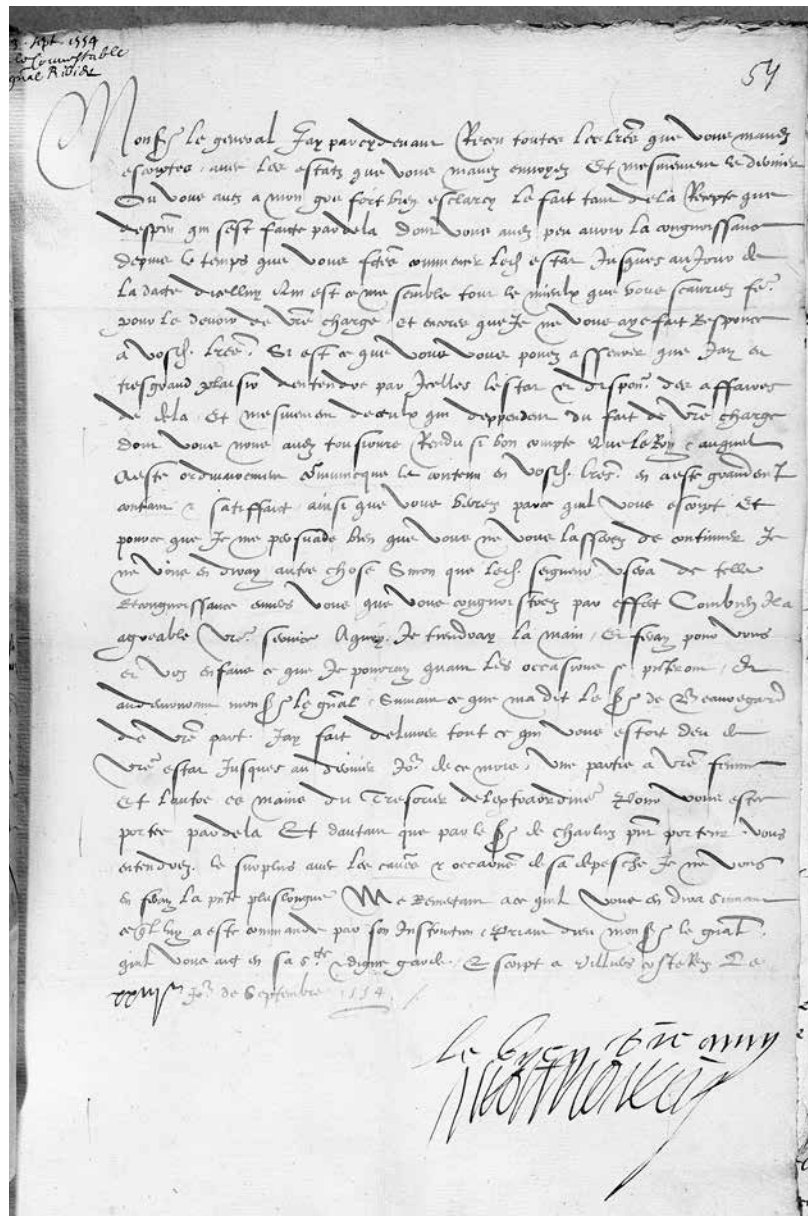 sept. 1554
le Connestable
gnal
57
Monsr le general Jay parcydevant Receu toutes les lres que vous mavez
escriptes, avec les estatz que vous mavez envoyez Et mesmement le dernier
Ou vous avez a mon gre fort bien esclarcy le fait tant dela Recepte que
despen qui sest faicte pardela dont vous avez peu avoir la congnoissance
depuis le temps que vous commencer led estat Jusques au Jour de
la dacte dicelluy Qui est ce me semble tout le mieulx que vous scauriez fe
pour le devoir de vre charge, et encores que Je ne vous aye fait Responce
a vosd. lres. Si est ce que vous vous pouez asseurer que Jay eu
tresgrand plaisir dentendre par Icelles lestat et dispon des affaires
de dela, Et mesmement deceulx qui deppendent du fait de vre charge
dont vous nous avez tousiours Rendu si bon compte Que le Roy auquel
a este ordinairement communicque le contenu en vosd. lres. en a este grandemt
contant & satisfaict, ainsi que vous verrez parce quil vous escript Et
pource que Je me persuade bien que vous ne vous lasserez de continuer Je
ne vous en diray autre chose Sinon que led. seigneur usera de telle
Recongnoissance envers vous que vous congnoistrez par effect Combien Il a
agreable vre service Aquoy Je tiendray la main, Et feray pour vous
et voz enfans ce que Je pourray quant les occasions se pnteront, Et
audemourant monsr le gnal, Suivant ce que ma dit le Sr de Beauregard
de vre part Jay fait delivrer tout ce qui vous estoit deu de
vre estat Jusques au dernier Jor de ce mois, Une partie a vre femme
Et lautre es mains du Tresorier delextraordine Pour vous estre
portee pardela Et dautant que par le Sr de pnt porteur vous
entendrez le surplus avec les causes & occasions de sa depesche Je ne vous
en feray la pnte pluslongue Me Remetant ace quil vous en dira suivant
ce ql luy a este commande par son Instruction, Priant dieu monsr le gnal
quil vous ait en sa ste & digne garde. Escript a Villiers costeRez Le
Jor de Septembre 1554
le byen vre amy
Montmorency